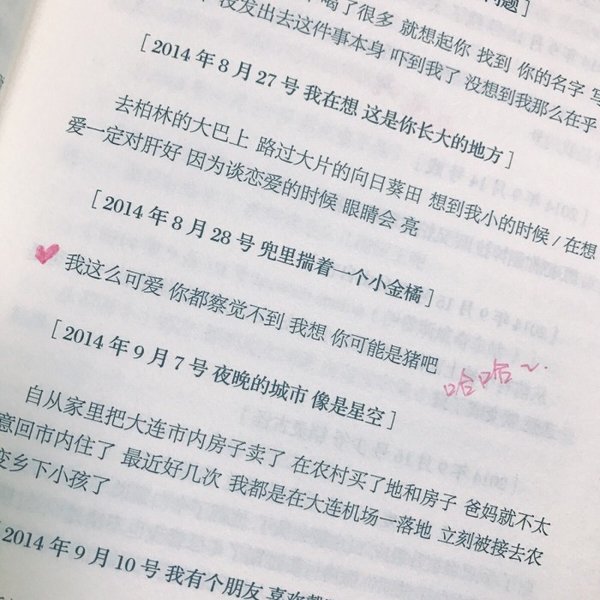 问题]
喝了很多 就想起你 找到 你的名字 写
没发出去这件事本身 吓到我了 没想到我那么在乎
[2014年8月27号 我在想 这是你长大的地方]
去柏林的大巴上 路过大片的向日葵田 想到我小的时候/在想
爱一定对肝好 因为谈恋爱的时候 眼睛会 亮
[2014年8月28号 兜里揣着一个小金橘]
我这么可爱 你都察觉不到 我想 你可能是猪吧
哈哈~
[2014年9月7号 夜晚的城市 像是星空]
自从家里把大连市内房子卖了 在农村买了地和房子 爸妈就不太
意回市内住了 最近好几次 我都是在大连机场一落地 立刻被接去农
变乡下小孩了
[2014年9月10号 我有个朋友 喜欢